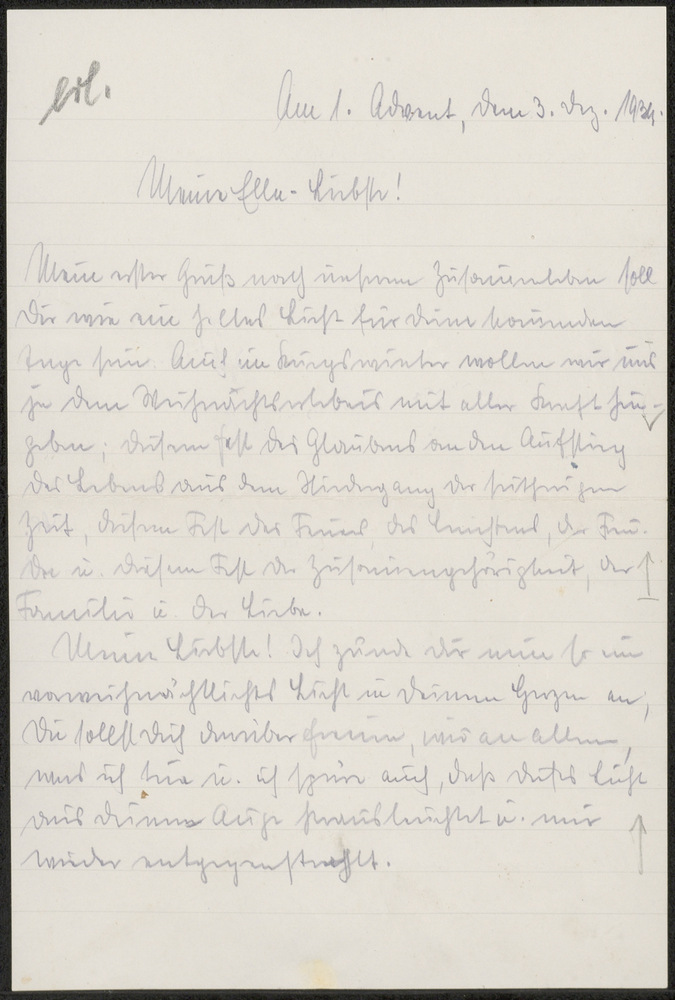 erl.
Am 1. Advent, dem 3. Dez. 1944.
Meine Ella-Liebste!
Mein erster Gruß nach unserem Zusammenleben soll
Dir wie ein helles Licht für Deine kommenden
Tage sein. Auch im Kriegswinter wollen wir uns
ja dem Weihnachtserlebnis mit aller Kraft hin-
geben; diesem Fest des Glaubens an den Aufstieg
des Lebens aus dem Niedergang der seitherigen
Zeit, diesem Fest des Feuers, des Leuchtens, der Freu-
de u. diesem Fest der Zusammengehörigkeit, der
Familie u. der Liebe.
Meine Liebste! Ich zünde dir nun so ein
vorweihnachtliches Licht in Deinem Herzen an,
Du sollst Dich darüber freuen, wie an allem,
was ich tue u. ich spüre auch, daß dieses Licht
aus Deinem Auge herausleuchtet u. mir
wieder entgegenstrahlt.